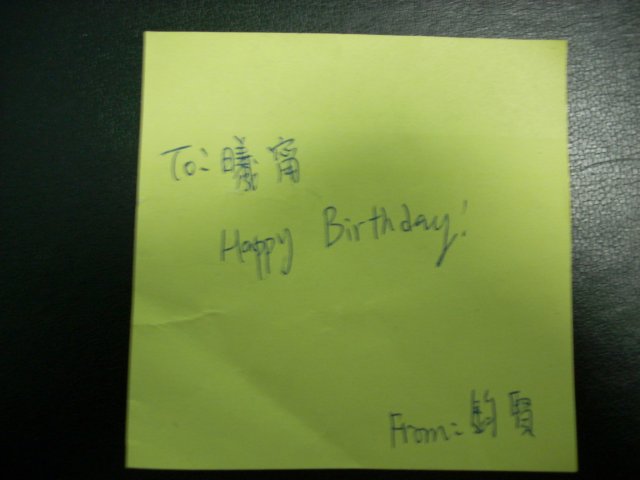 To: 曦甯
Happy Birthday!
From: 鈞賢